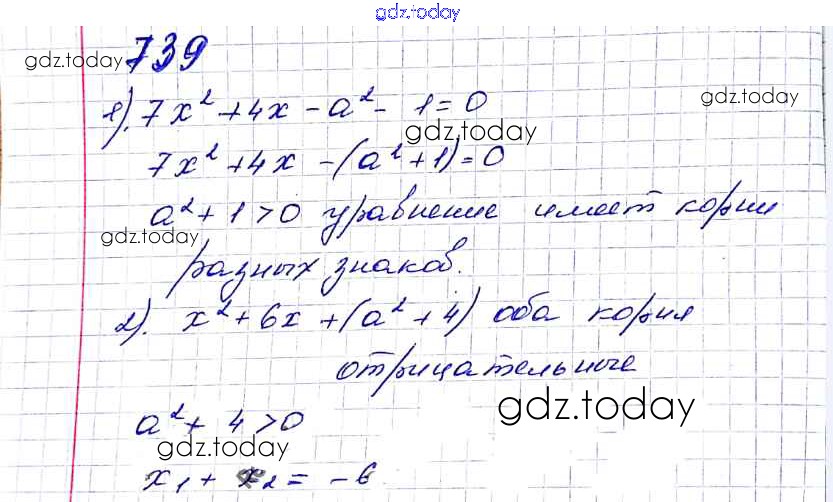 gdz.today
gdz.today
739
1). 7x² + 4x - a² - 1 = 0
gdz.today
gdz.today
7x² + 4x - (a² + 1) = 0
a² + 1 > 0 уравнение имеет корни
gdz.today
разных знаков.
2). x² + 6x + (a² + 4) оба корня
отрицательные
gdz.today
a² + 4 > 0
gdz.today
x₁ + x₂ = -6